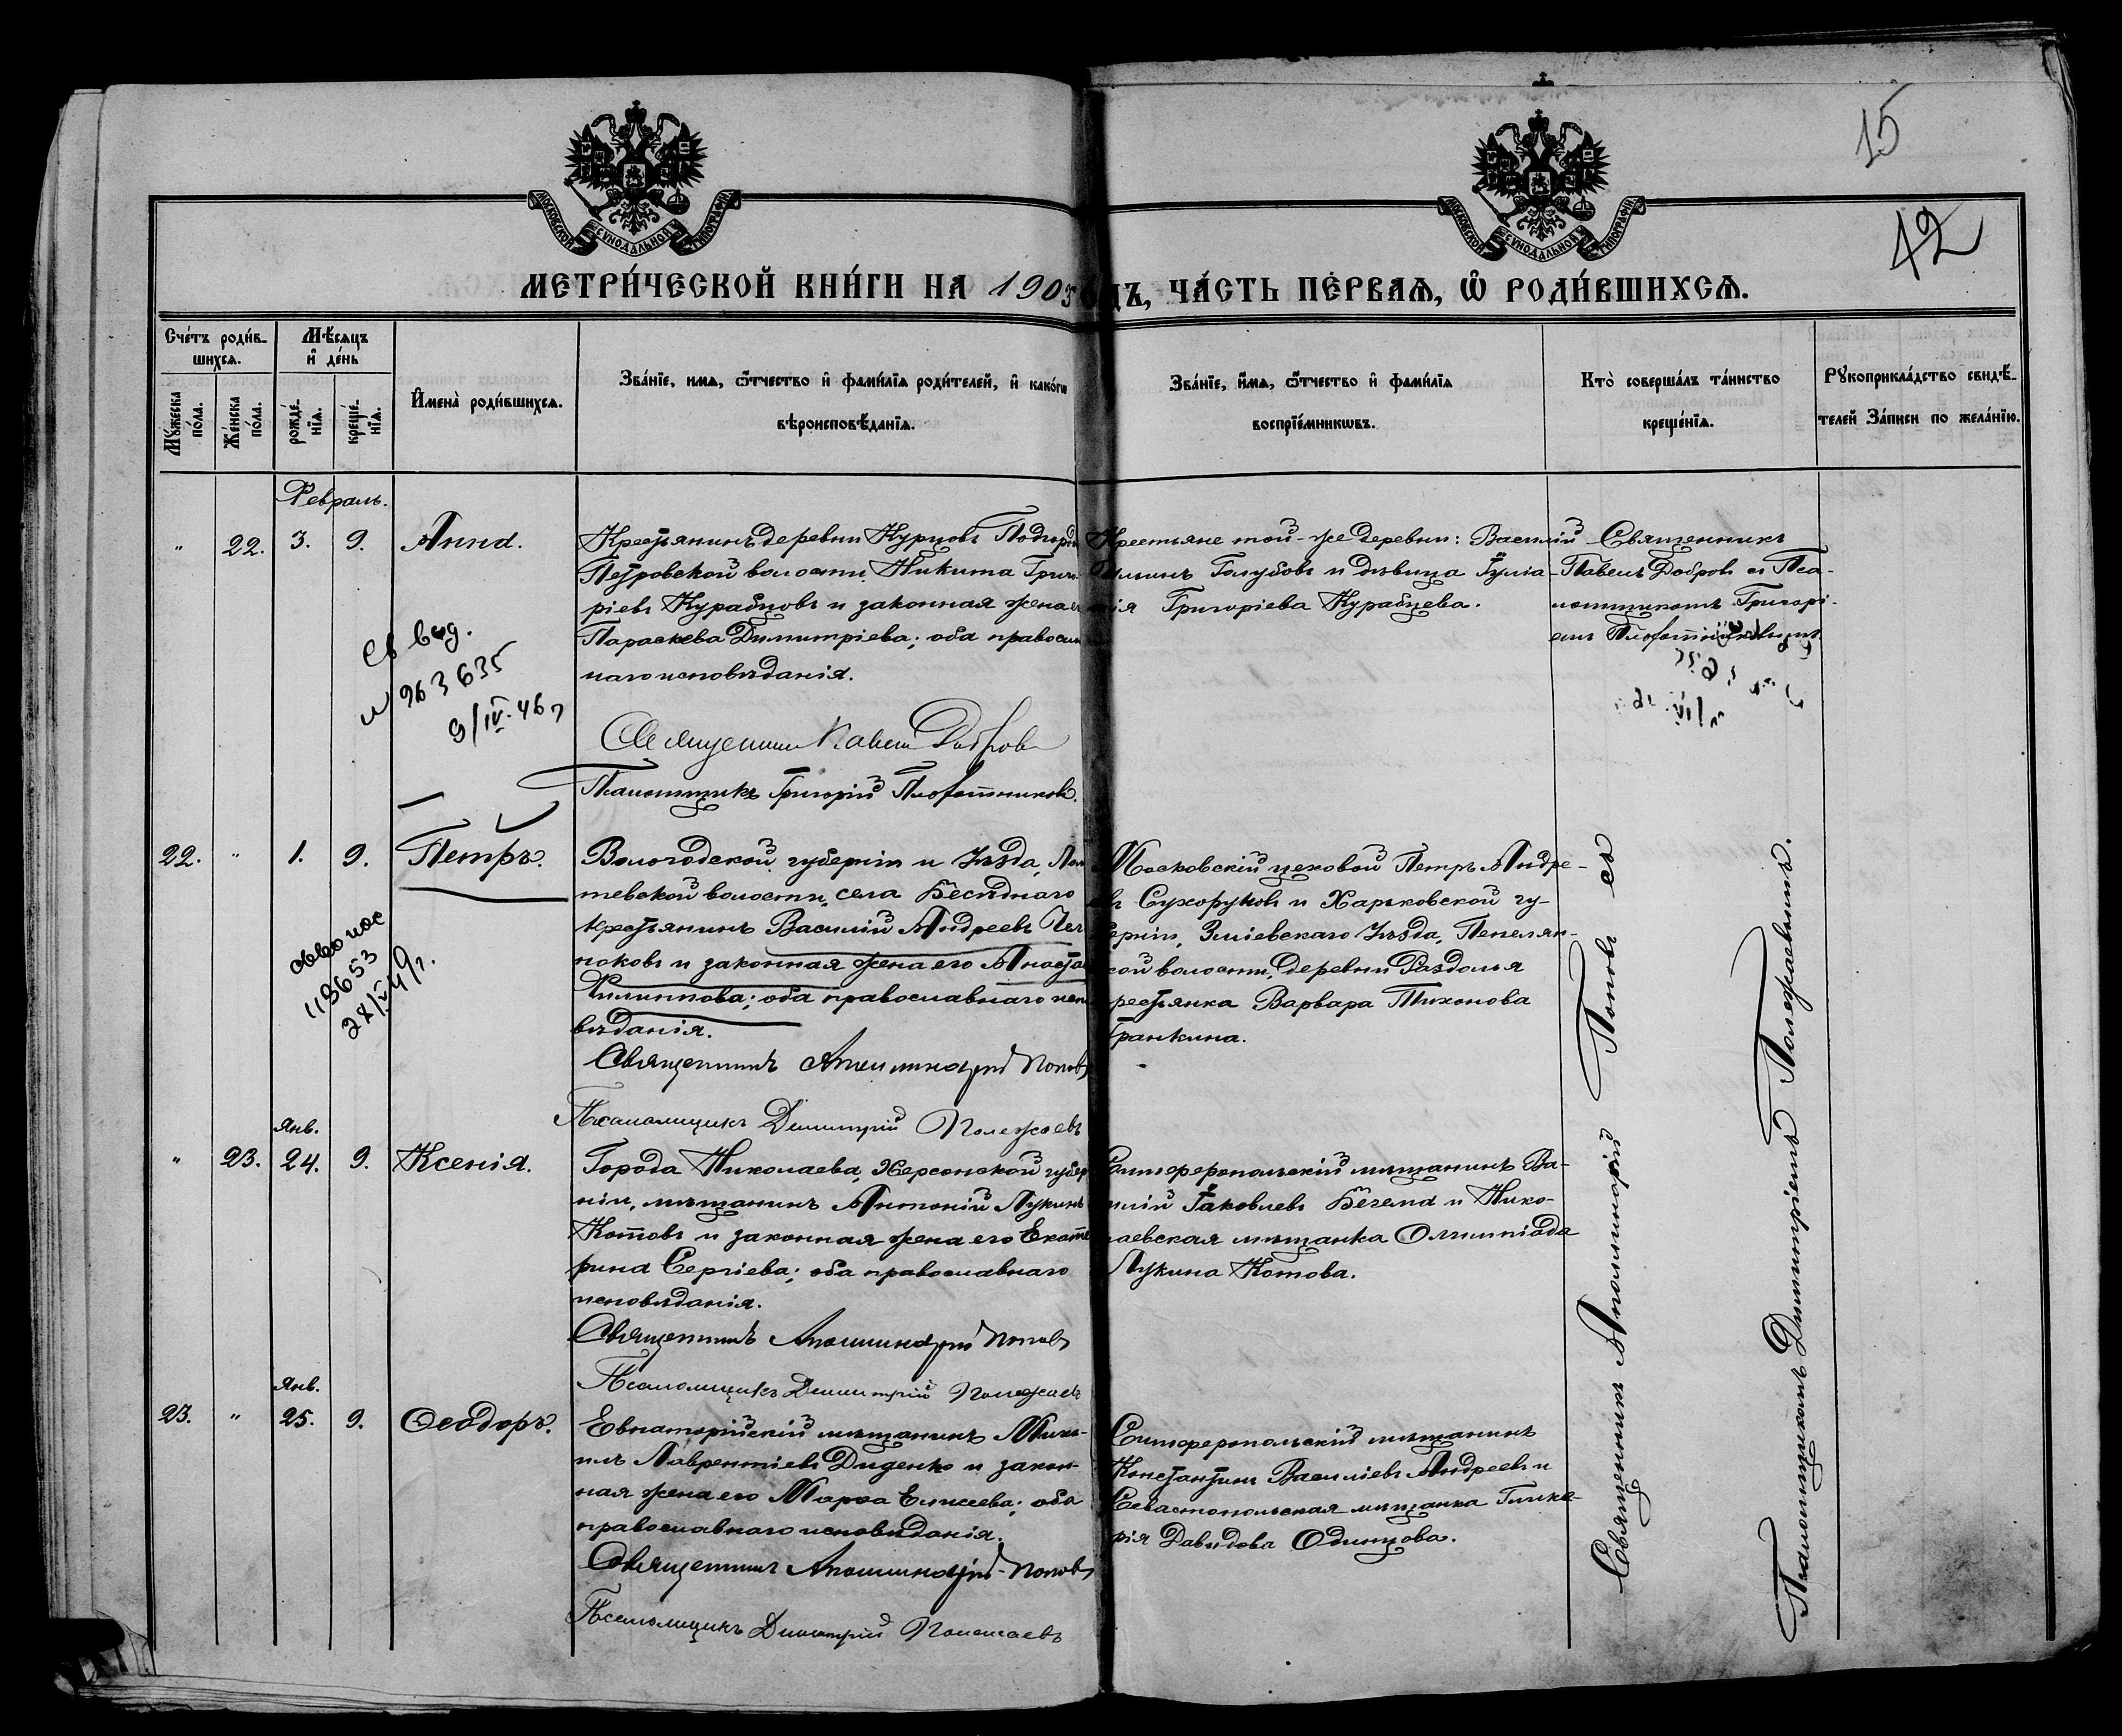 15
42
МОСКОВСКОЙ СѴНОДАЛЬНОЙ ТИПОГРАФІИ
МОСКОВСКОЙ СѴНОДАЛЬНОЙ ТИПОГРАФІИ
МЕТРИ́ЧЕСКОЙ КНИ́ГИ НА 1905
ДЪ, ЧА́СТЬ ПЕ́РВАѦ, Ѡ҆ РОДИ́ВШИХСѦ.
Сче́тъ роди́в-
шихсѧ.
Му́жеска по́ла.
Же́нска по́ла.
Мѣ́сѧцъ
и҆ де́нь
рожде́-
нїѧ.
креще́-
нїѧ.
И҆мена̀ роди́вшихсѧ.
Зва́нїе, имѧ, ѻ҆́тчество и҆ фами́лїѧ роди́телей, и҆ како́гѡ
вѣроисповѣ́данїѧ.
Зва́нїе, и҆́мѧ, ѻ҆́тчество и҆ фами́лїѧ
воспрїе́мникѡвъ.
Кто̀ соверша́лъ та́инство
креще́нїѧ.
Рꙋкоприкла́дство свидѣ́-
телей За́писи по жела́нїю.
Февраль.
" 22. 3. 9. Анна.
Крестьянинъ деревни Курцовъ Подгор
Петровской волости Никита Григо
ріевъ Курабцовъ и законная жена е
Параскева Димитріева; оба правосла
наго исповѣданія.
Священникъ Павелъ Добров
Псаломщикъ Григорій Плотниковъ.
Крестьяне той-же деревни: Василій
Ильинъ Голубовъ и дѣвица Іуліа-
нія Григоріева Курабцева.
Священникъ
Павелъ Добровъ съ Пса-
ломщикомъ Григорі-
емъ
Св выд.
№ 963635
9/IV-46 г
22. " 1. 9. Петръ.
Вологодской губерніи и Уѣзда,
тевской волости, села Бесѣднаго
крестьянинъ Василій Андреевъ Чел
ноковъ и законная жена его Анаста
Филиппова; оба православнаго испо
вѣданія.
Священникъ Аполлинарій Поповъ
Псаломщикъ Димитрій Полежаевъ
Московскій цеховой Петръ Андре-
въ Сухоруковъ и Харьковской гу-
берніи, Зміевскаго Уѣзда,
кой волости, деревни Раздолья
крестьянка Варвара Тихонова
Гранкина.
118653
Янв.
" 23. 24. 9. Ксенія.
Города Николаева, Херсонской губер
ніи, мѣщанинъ Антоній Лукинъ
Котовъ и законная жена его Екате
рина Сергіева; оба православнаго
исповѣданія.
Священникъ Аполлинарій Поповъ
Псаломщикъ Димитрій Полежаевъ
Симферопольскій мѣщанинъ Ва-
силій Іаковлевъ Бегема и Нико-
лаевская мѣщанка Олимпіада
Лукина Котова.
Янв.
23. " 25. 9. Ѳеодоръ.
Евпаторійскій мѣщанинъ Миха-
илъ Лаврентіевъ Диденко и закон-
ная жена его Марѳа Елисеева; оба
православнаго исповѣданія.
Священникъ Аполлинарій Поповъ
Псаломщикъ Димитрій Полежаевъ
Симферопольскій мѣщанинъ
Константинъ Василіевъ Андреевъ и
Севастопольская мѣщанка Глике-
рія Давидова Одинцова.
Священникъ Аполлинарій Поповъ съ
Псаломщикомъ Димитріемъ Полежаевымъ.